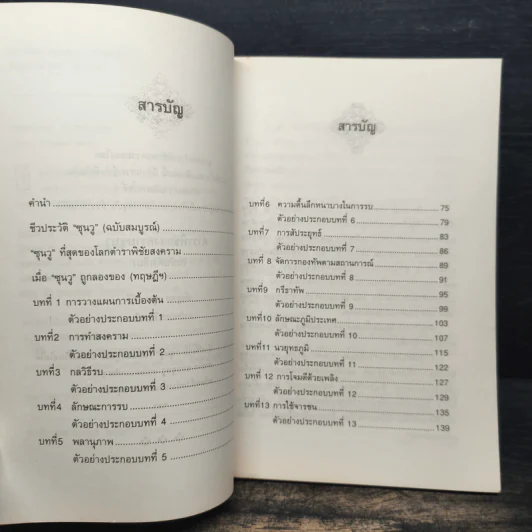 สารบัญ
คำนำ
ชีวประวัติ "ซุนวู" (ฉบับสมบูรณ์)
"ซุนวู" ที่สุดของโลกตำราพิชัยสงคราม
เมื่อ "ซุนวู" ถูกลองของ (ทฤษฎีฯ)
บทที่ 1 การวางแผนการเบื้องต้น
ตัวอย่างประกอบบทที่ 1
บทที่2 การทำสงคราม
ตัวอย่างประกอบบทที่ 2
บทที่3 กลวิธีรบ
ตัวอย่างประกอบบทที่ 3
บทที่4 ลักษณะการรบ
ตัวอย่างประกอบบทที่ 4
บทที่5 พลานุภาพ
ตัวอย่างประกอบบทที่ 5
สารบัญ
บทที่6 ความตื้นลึกหนาบางในการรบ 75
ตัวอย่างประกอบบทที่ 6 79
บทที่7 การสัประยุทธ์ 83
ตัวอย่างประกอบบทที่ 7 86
บทที่ 8 จัดการกองทัพตามสถานการณ์ 89
ตัวอย่างประกอบบทที่ 8 91
บทที่9 กรีธาทัพ 95
ตัวอย่างประกอบบทที่ 9 99
บทที่10 ลักษณะภูมิประเทศ 103
ตัวอย่างประกอบบทที่ 10 107
บทที่11 นวยุทธภูมิ 115
ตัวอย่างประกอบบทที่ 11 122
บทที่ 12 การโจมตีด้วยเพลิง 127
ตัวอย่างประกอบบทที่ 12 130
บทที่13 การใช้จารชน 135
ตัวอย่างประกอบบทที่ 13 139